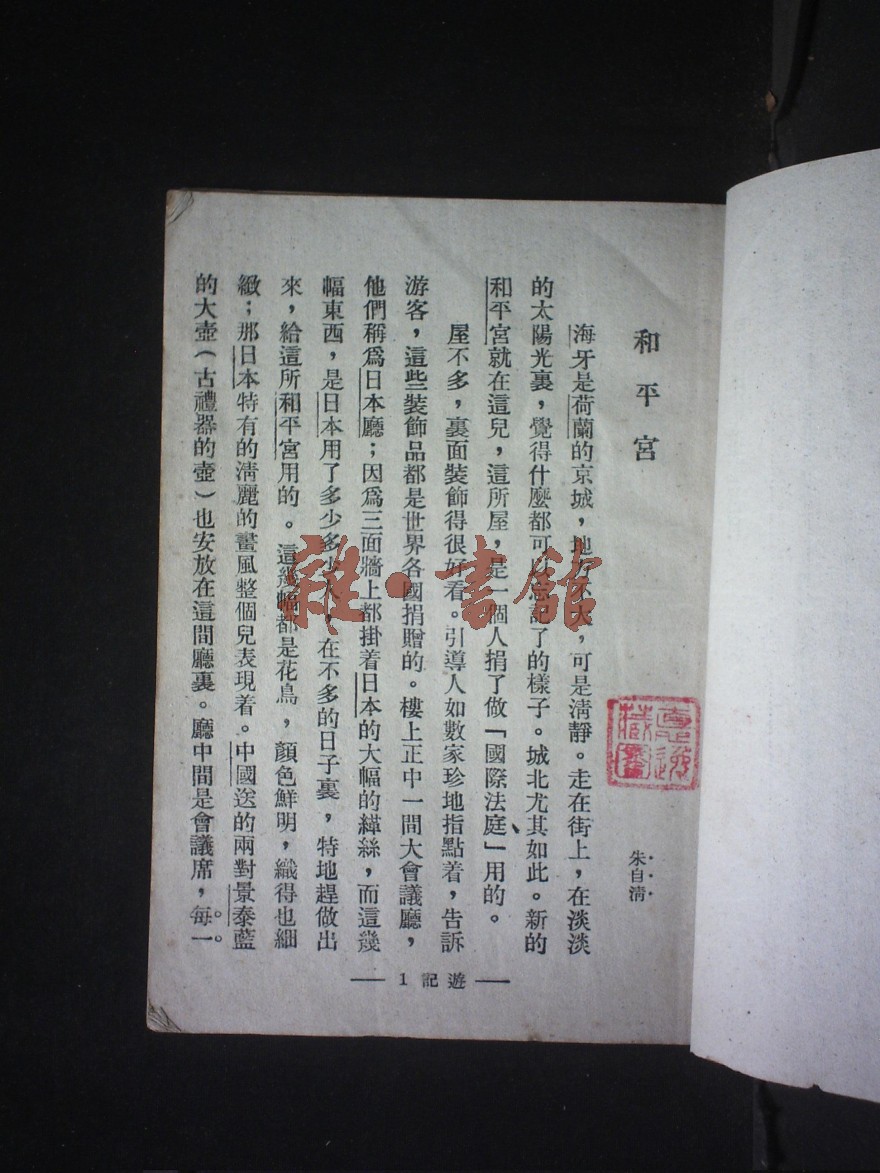 和平宮
朱自清
海牙是荷蘭的京城，地方不大，可是淸靜。走在街上，在淡淡
的太陽光裏，覺得什麼都可以忘記了的樣子。城北尤其如此。新的
和平宮就在這兒，這所屋，是一個人捐了做「國際法庭」用的。
屋不多，裏面裝飾得很好看。引導人如數家珍地指點着，告訴
游客，這些裝飾品都是世界各國捐贈的。樓上正中一間大會議廳，
他們稱爲日本廳；因爲三面牆上都掛着日本的大幅的緙絲，而這幾
幅東西，是日本用了多少多少人，在不多的日子裏，特地趕做出
來，給這所和平宮用的。這幾幅都是花鳥，顏色鮮明，織得也細
緻；那日本特有的淸麗的畫風整個兒表現着。中國送的兩對景泰藍
的大壺（古禮器的壺）也安放在這間廳裏。廳中間是會議席，每一
遊記 1
雜·書館